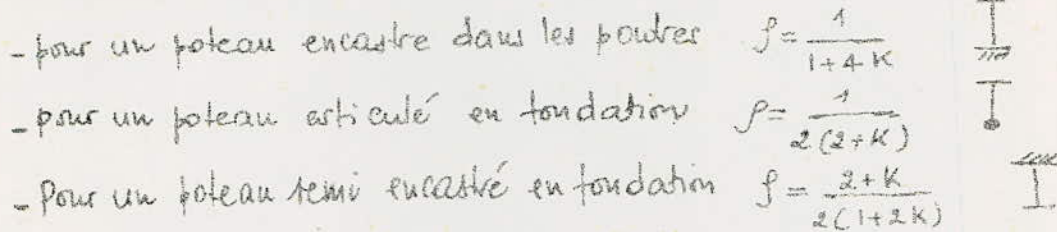 - pour un poteau encastre dans les poutres ρ = 1/(1+4K)
- pour un poteau articulé en fondation ρ = 1/(2(2+K))
- Pour un poteau semi encastré en fondation ρ = (2+K)/(2(1+2K))